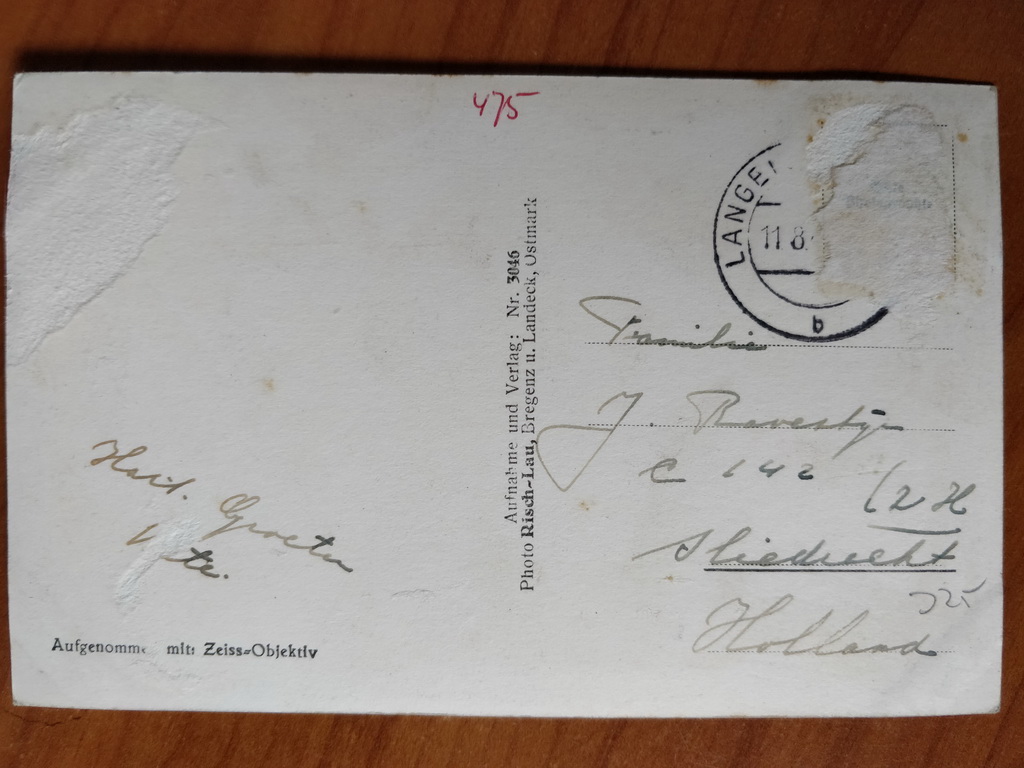 475
LANGE
11 8.
b
Aufnahme und Verlag: Nr. 3046
Photo Risch-Lau, Bregenz u. Landeck, Ostmark
Familie
J. Ravestijn
C 142
(ZH
Sliedrecht
Holland
325
Hart. Groeten
Aufgenomme mit: Zeiss-Objektiv